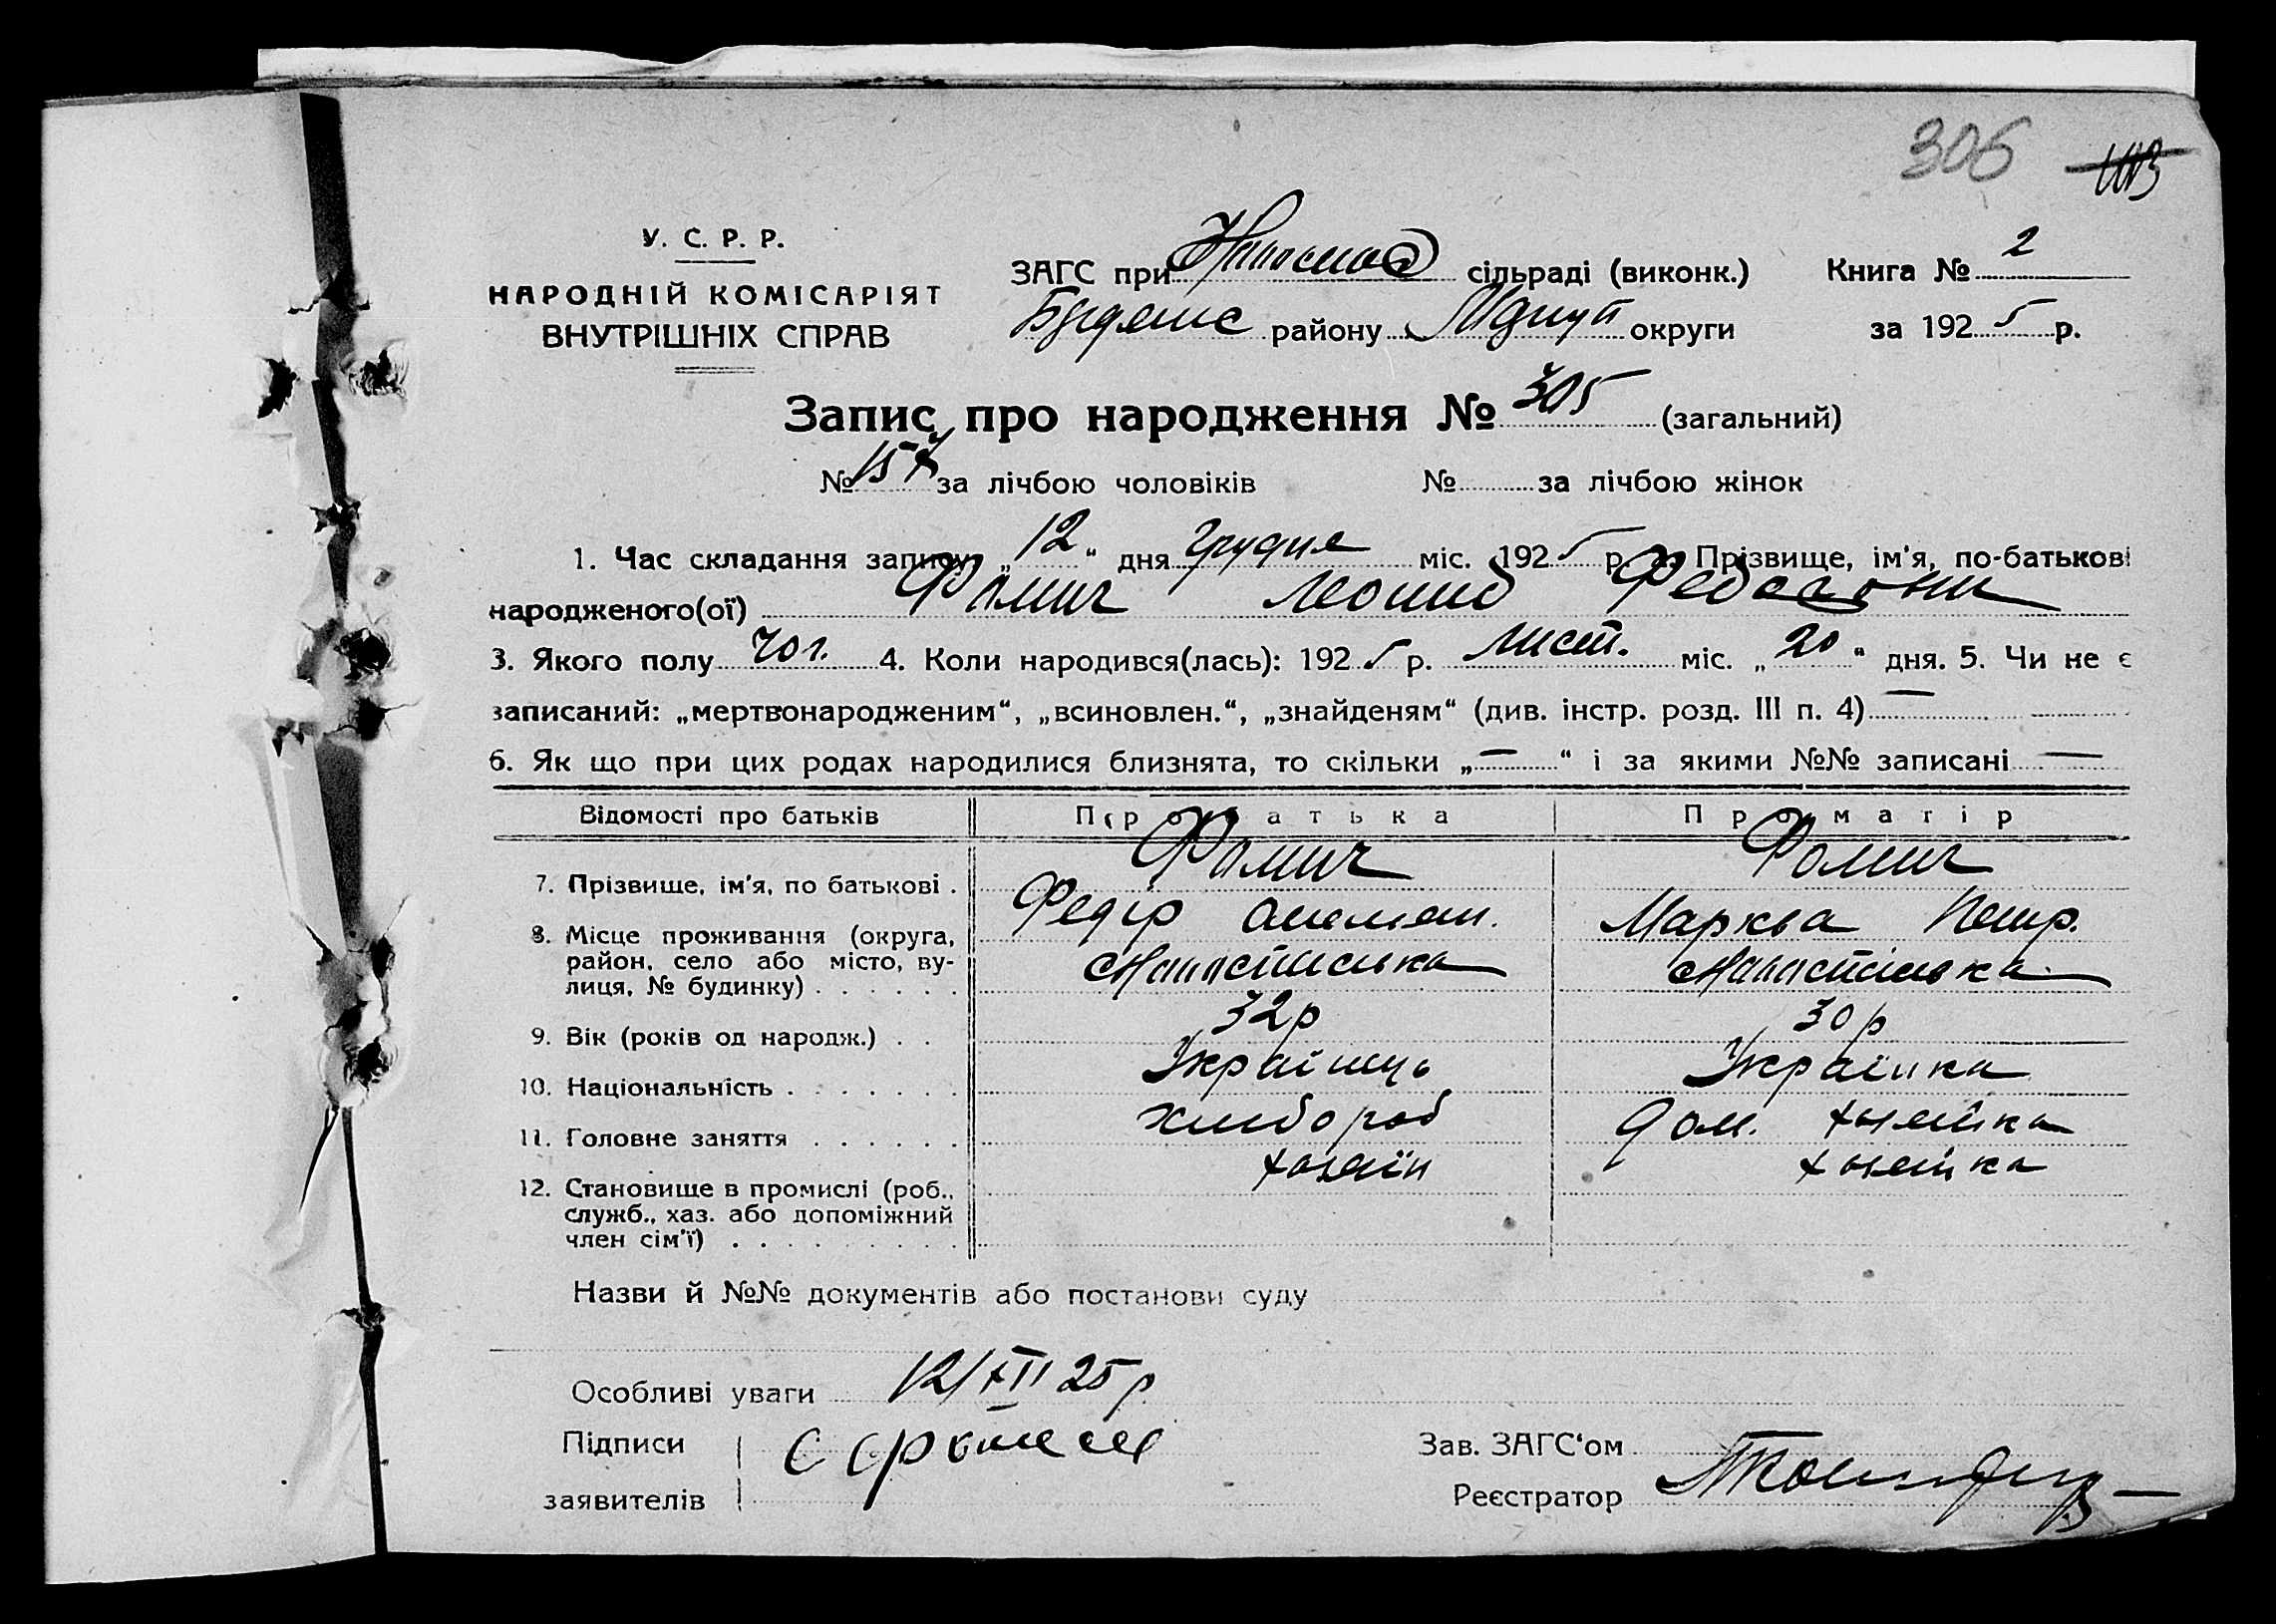 306
У. С. Р. Р.
НАРОДНІЙ КОМІСАРІЯТ
ВНУТРІШНІХ СПРАВ
ЗАГС при сільраді (виконк.) Книга № 2
району округи за 1925 р.
Запис про народження № 305 (загальний)
№ 157 за лічбою чоловіків № за лічбою жінок
1. Час складання запису „12“ дня Грудня міс. 1925 р. Прізвище, ім'я, по-батькові
народженого(ої) Фомич Леонид
3. Якого полу чол. 4. Коли народився(лась): 1925 р. Лист. міс. „20“ дня. 5. Чи не є
записаний: „мертвонародженим“, „всиновлен.“, „знайденям“ (див. інстр. розд. III п. 4) —
6. Як що при цих родах народилися близнята, то скільки „—“ і за якими №№ записані —
Відомості про батьків Про батька Про матір
7. Прізвище, ім'я, по батькові . Фомич Фомич
Федір Петр.
8. Місце проживання (округа, район, село або місто, вулиця, № будинку) . . . . . .
9. Вік (років од народж.) . . 32р 30р
10. Національність . . . . . . . Українець Українка
11. Головне заняття . . . . . . хлибороб дом. хозяйка
12. Становище в промислі (роб., служб., хаз. або допоміжний член сім'ї) . . . . . . . . . хозяїн хозяйка
Назви й №№ документів або постанови суду
Особливі уваги 12/XII 25р
Підписи
заявителів
Зав. ЗАГС'ом
Реєстратор